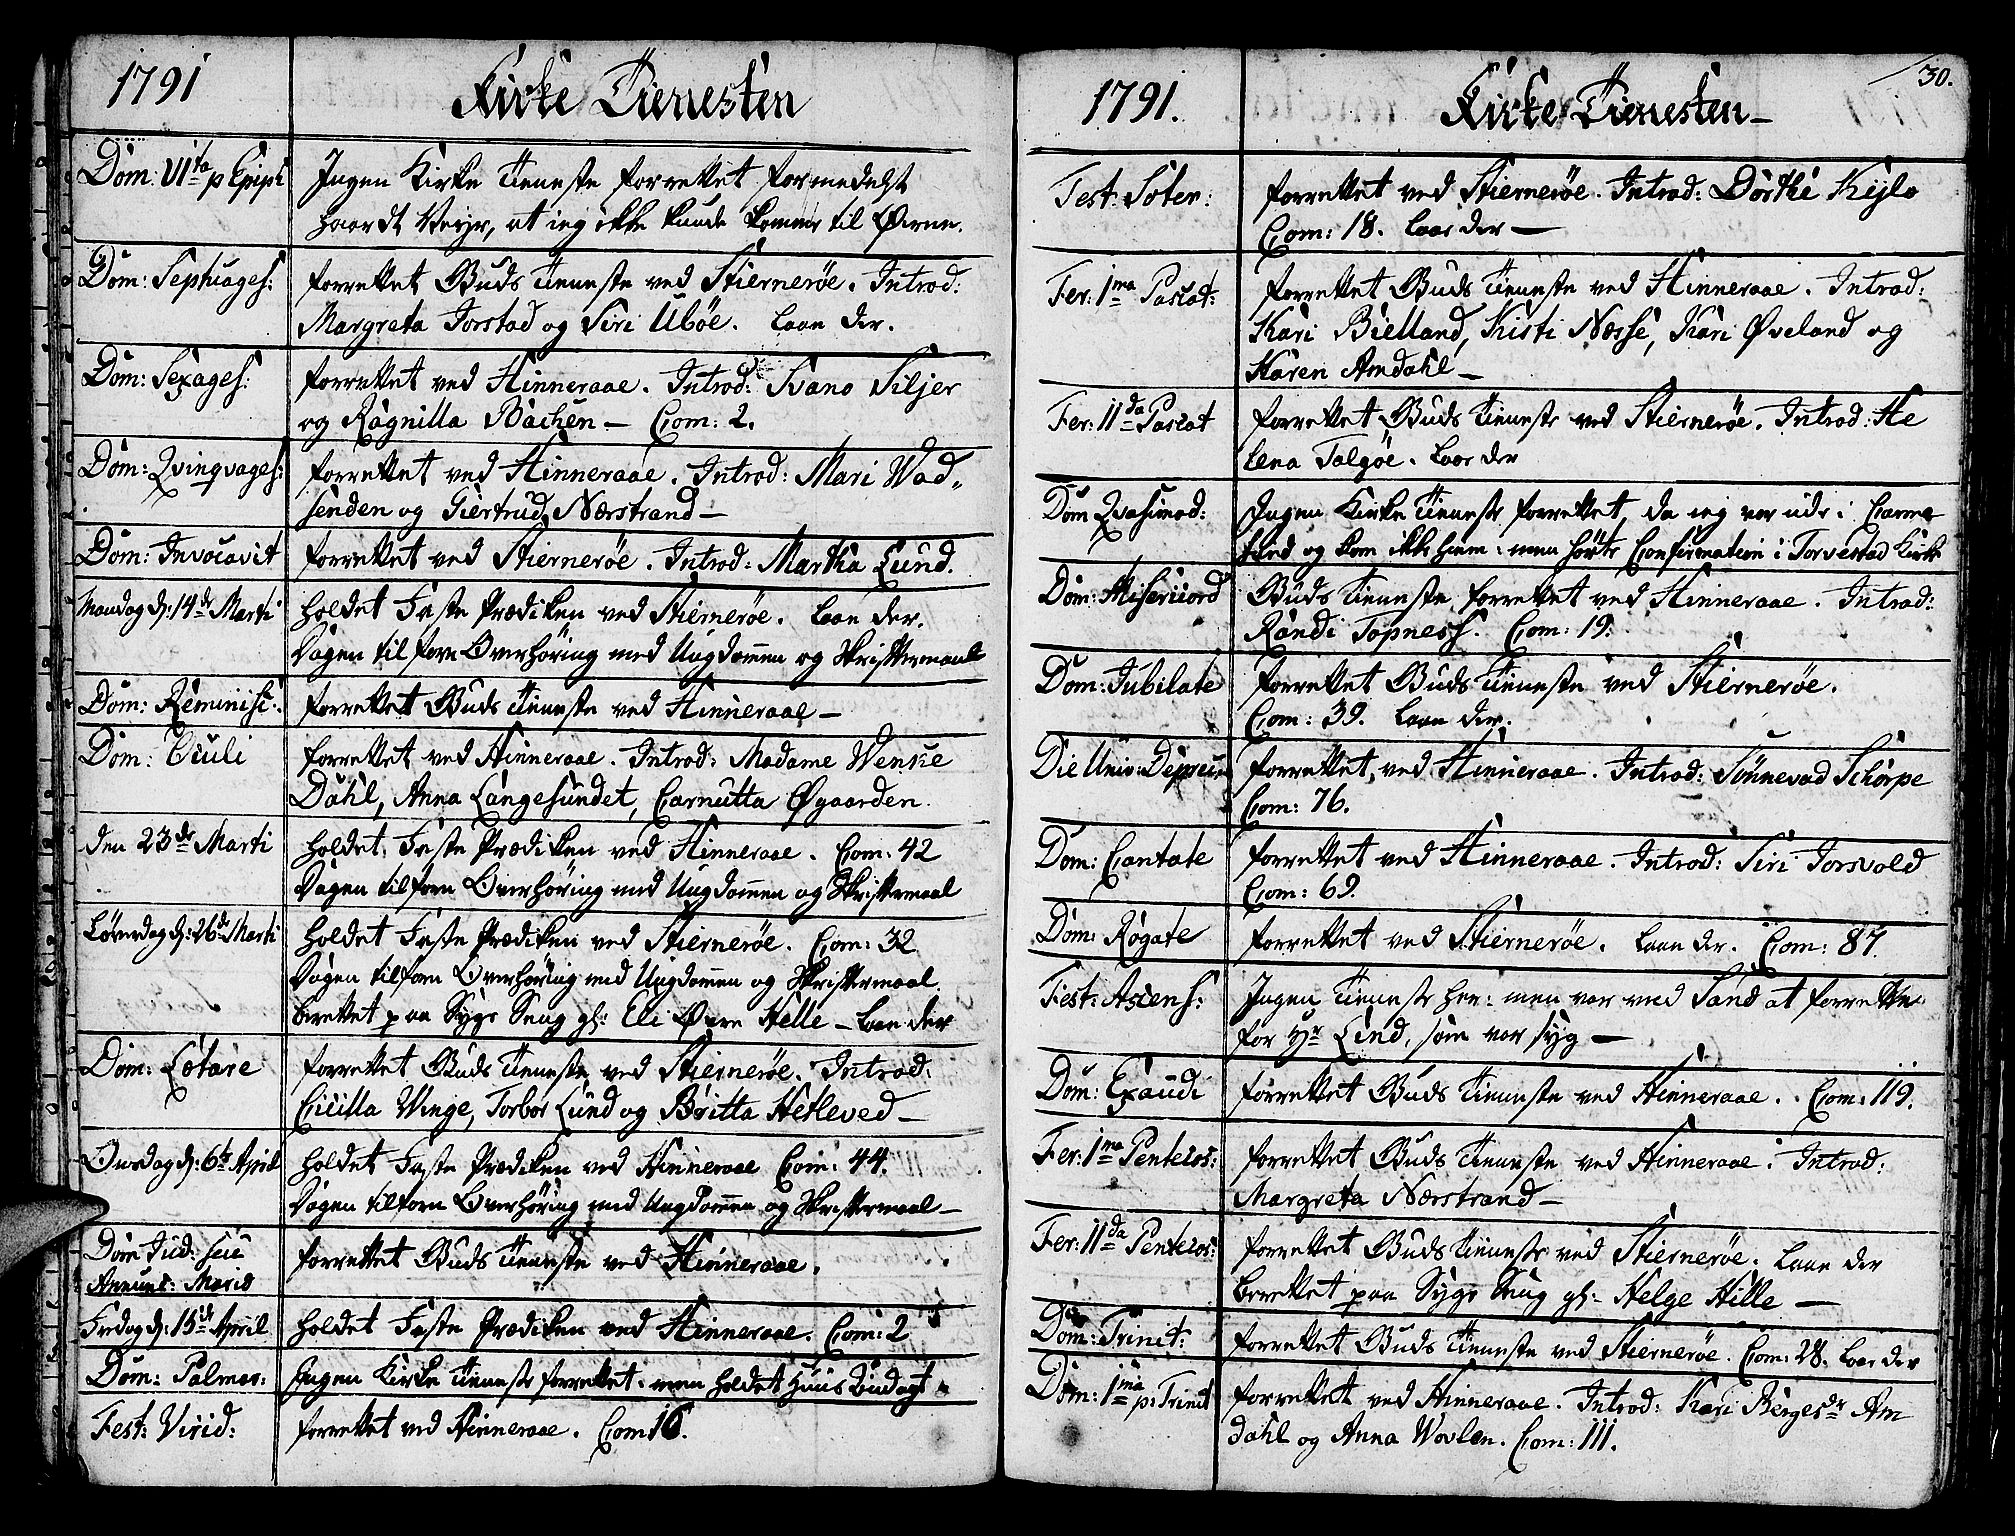 1791
Kirke Tienesten
Dom: VIta p Epiph
Ingen Kirke Tieneste forrettet formedelst
haardt Veyr, at ieg ikke kunde komme til Øerne.
Dom: Septuages:
forrettet Guds Tieneste ved Stiernerøe. Introd:
Margreta Jorstad og Siri Ubøe. laae der.
Dom: Sexages:
forrettet ved Hinneraae. Introd: Svano Siljer
og Ragnilla Bachen – Com: 2.
Dom: Qvinqvages:
forrettet ved Hinneraae. Introd: Mari Wad„
senden og Giertrud Nærstrand –
Dom: Invocavit
forrettet ved Stiernerøe. Introd: Martha Lund.
Mandag d: 14de Marti
holdet Faste Prædiken ved Stiernerøe. laae der.
Dagen til forn Overhøring med Ungdommen og Skriftermaal
Dom: Reminisc:
forrettet Guds Tieneste ved Hinneraae –
Dom: Oculi
forrettet ved Hinneraae. Introd: Madame Wenke
Dahl, Anna Langesundet, Carnutta Øgaarden.
den 23de Marti
holdet Faste Prædiken ved Hinneraae. Com: 42
Dagen tilforn Overhøring med Ungdommen og Skriftermaal
Løverdag d: 26de Marti
holdet Faste Prædiken ved Stiernerøe. Com: 32
Dagen tilforn Overhøring med Ungdommen og Skriftermaal.
berettet paa Syge Seng gl: Eli Øvre Helle – laae der
Dom: Lætare
forrettet Guds Tieneste ved Stiernerøe. Introd:
Cicilla Winge, Torbor Lund og Britta Hetleved –
Onsdag d: 6te April
holdet Faste Prædiken ved Hinneraae Com: 44.
Dagen tilforn Overhøring med Ungdommen og Skriftermaal –
Dom Jud: seu
Annunc: Mariæ
forrettet Guds Tieneste ved Hinneraae.
Fredag d: 15de April
holdet Faste Prædiken ved Hinneraae. Com: 2
Dom: Palmar:
Ingen Kirke Tieneste forrettet. men holdet Huus Andagt
Fest: Virid:
forrettet ved Hinneraae. Com 16.
30.
1791.
Kirke Tienesten –
Fest: Soter:
forrettet ved Stiernerøe. Introd: Dorthe Kiglo
Com: 18. laae der –
Fer: 1ma Pascat:
forrettet Guds Tieneste ved Hinneraae. Introd:
Kari Bielland, Kisti Næsse, Kari Øveland og
Karen Amdahl –
Fer: IIda Pascat
forrettet Guds Tieneste ved Stiernerøe. Introd: He
lena Talgøe. laae der
Dom Qvasimod:
Ingen Kirke Tieneste forrettet, da ieg var ude i Carme
sund og kom ikke hiem: men hørte Confirmation i Torvestad Kirke
Dom: Misericord
Guds Tieneste forrettet ved Hinneraae. Introd:
Randi Topness. Com: 19.
Dom: Jubilate
forrettet Guds Tieneste ved Stiernerøe.
Com: 39. laae der.
Die Univ: Deprecat
forrettet ved Hinneraae. Introd: Sønneva Schorpe
Com: 76.
Dom: Cantate
forrettet ved Hinneraae. Introd: Siri Jorsvold
Com: 69.
Dom: Rogate
forrettet ved Stiernerøe. laae der. Com: 87.
Fest: Ascens:
Ingen Tieneste her: men var ved Sand at forrette
for Hr Lind, som var syg –
Dom: Exaudi
forrettet Guds Tieneste ved Hinneraae. Com: 119.
Fer: 1ma Pentecos:
forrettet Guds Tieneste ved Hinneraae. Introd:
Margreta Nærstrand –
Fer: IIda Pentecos:
forrettet Guds Tieneste ved Stiernerøe. laae der
berettet paa Syge Seng gl: Helge Hille –
Dom: Trinit:
forrettet Guds Tieneste ved Stiernerøe. Com: 28. laae der
Dom: 1ma p: Trinit
forrettet ved Hinneraae. Introd: Kari Bergesdr Am
dahl og Anna Wovlen. Com: 111.